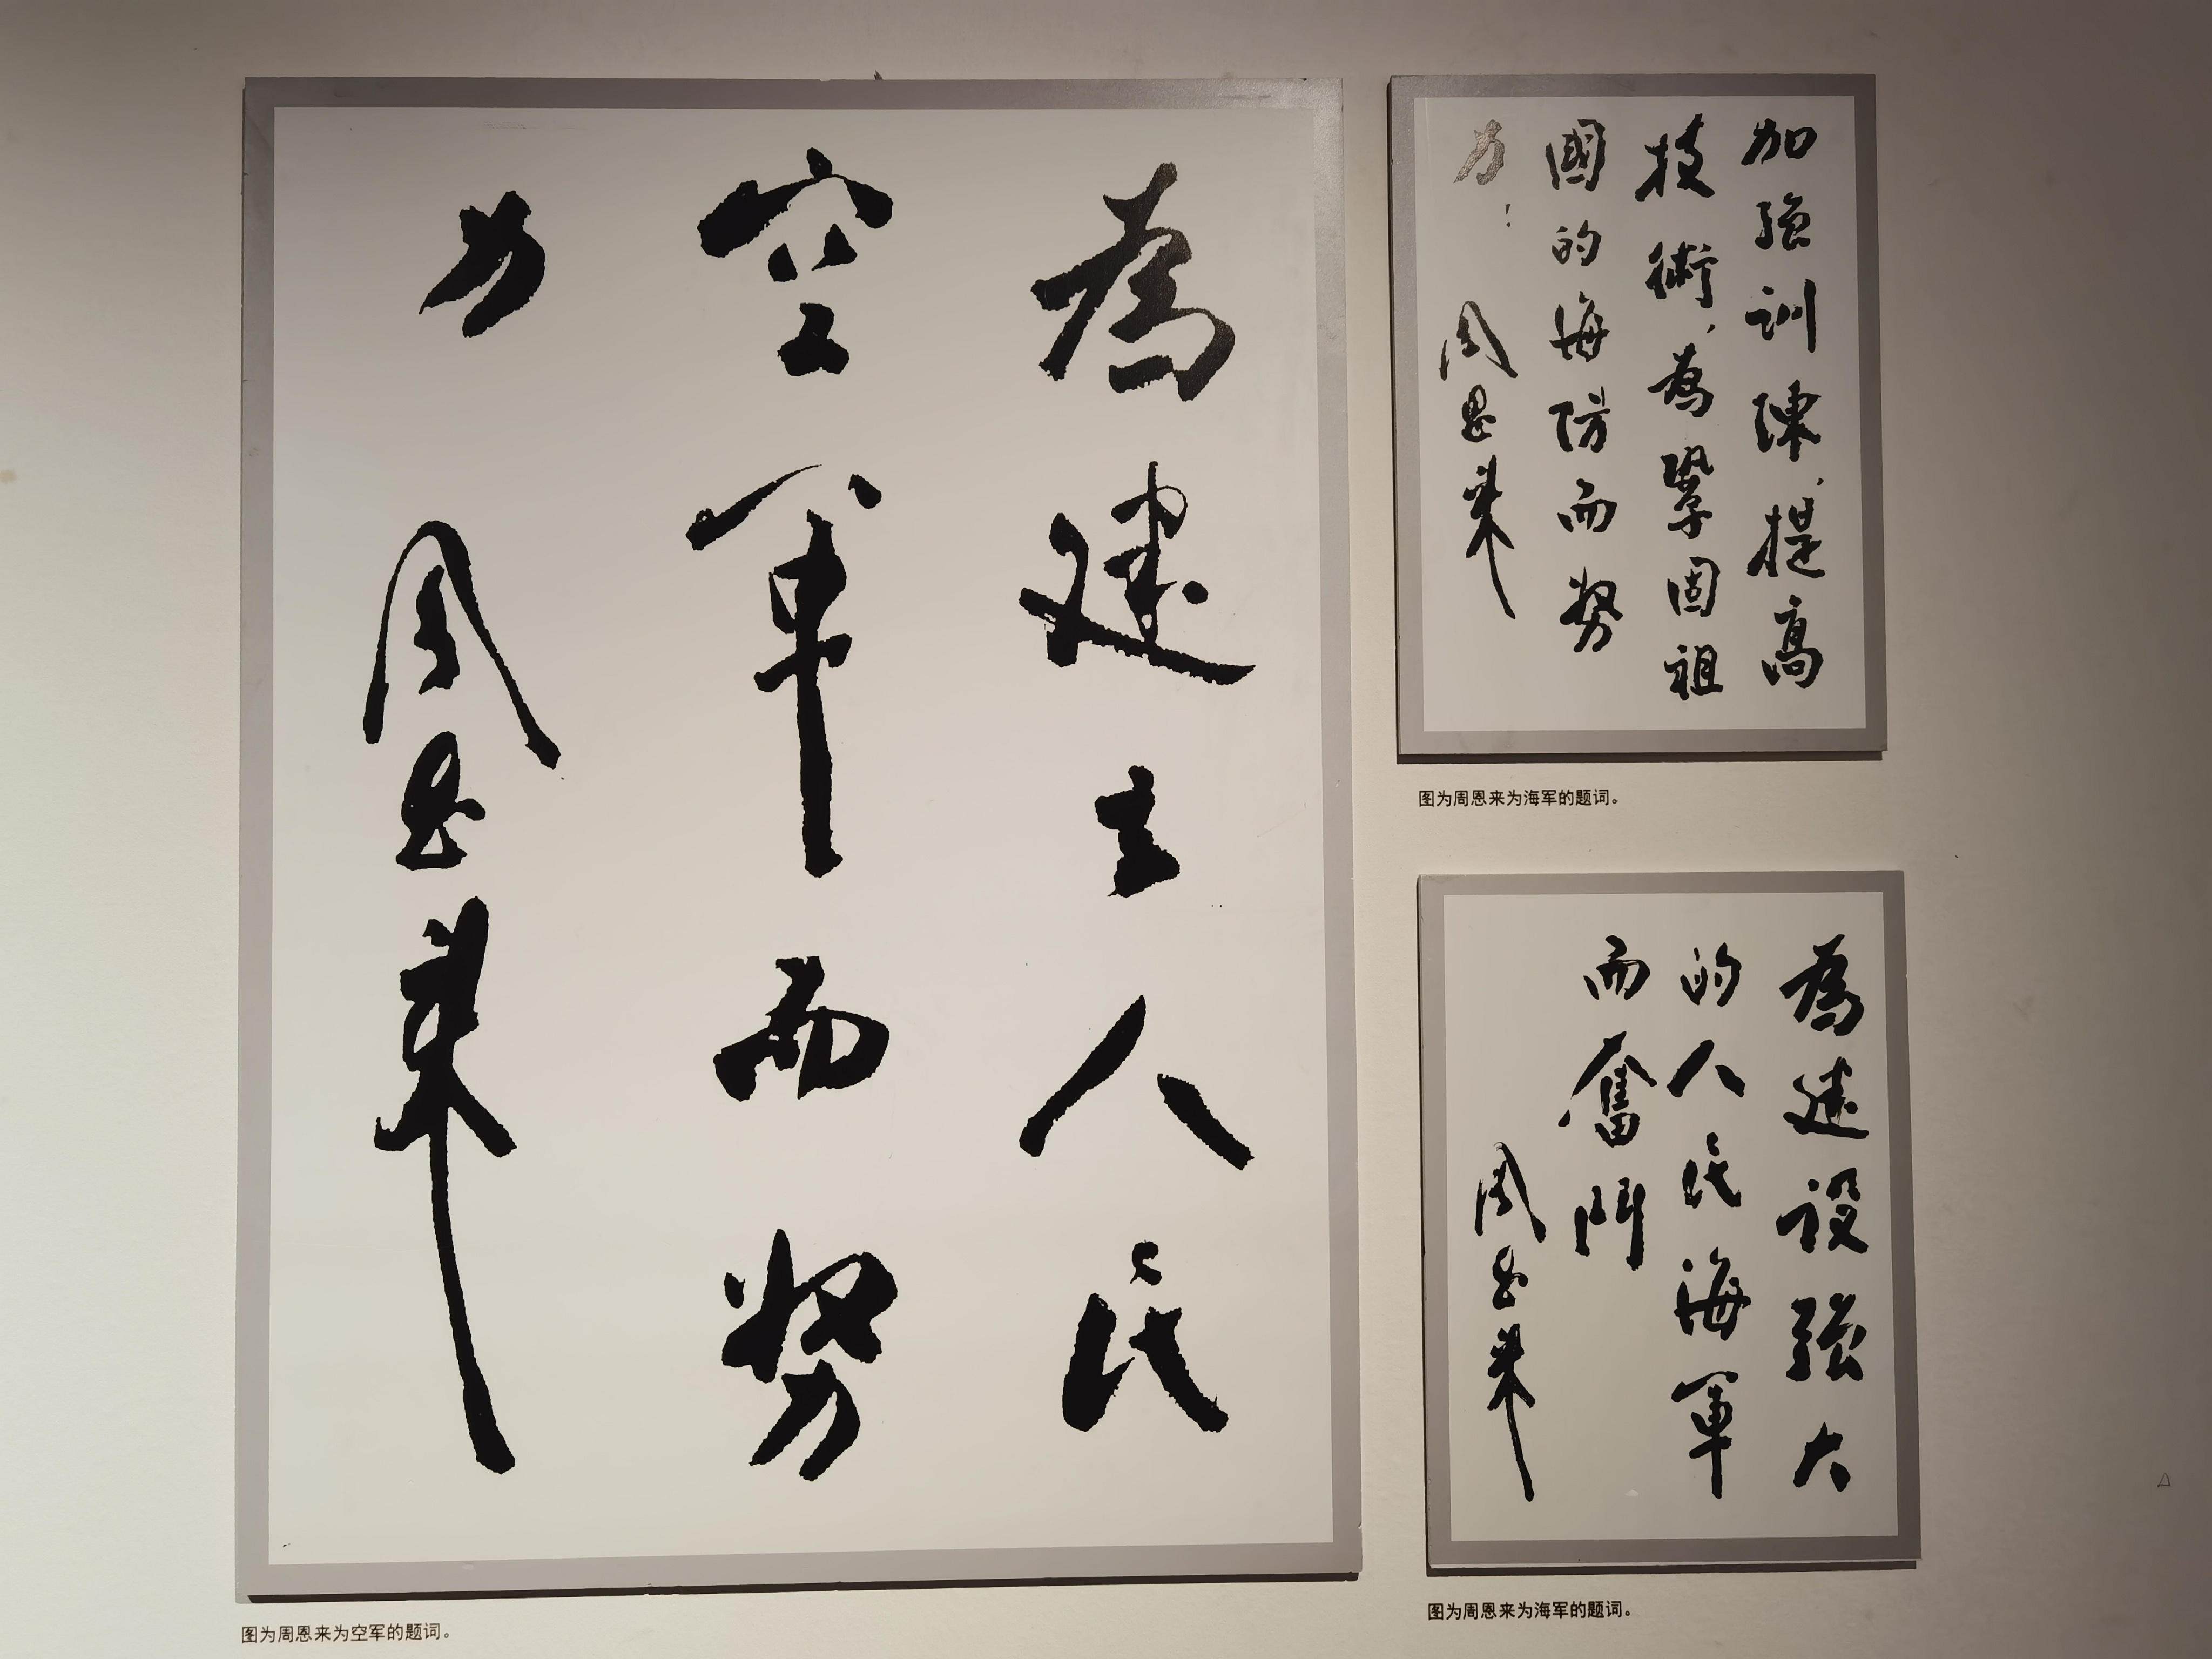 為建立人民
空军而努
力
周恩来
图为周恩来为空军的题词。
加强训陳，提高
技術，為鞏固祖
國的海防而努
力！
周恩来
图为周恩来为海军的题词。
為建设强大
的人民海軍
而奮鬥
周恩来
图为周恩来为海军的题词。